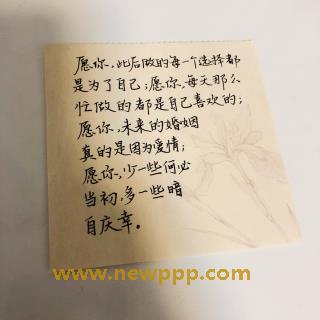 愿你,此后做的每一个选择都
是为了自己;愿你,每天那么
忙做的都是自己喜欢的;
愿你,未来的婚姻
真的是因为爱情;
愿你,少一些何必
当初,多一些暗
自庆幸。
www.newppp.com